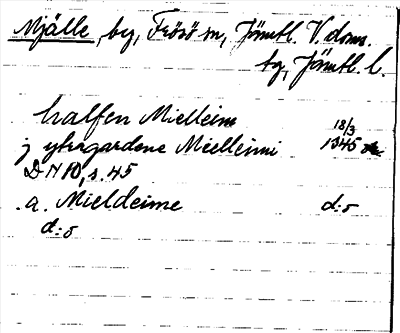 Mjälle, by, Frösö sn, Jämtl. V. doms.
tg, Jämtl. l.
halfen Mielleim 18/3
j ytragardene Mielleimi 1345
DN 10, s. 45
a. Mieldeime d:o
d:o